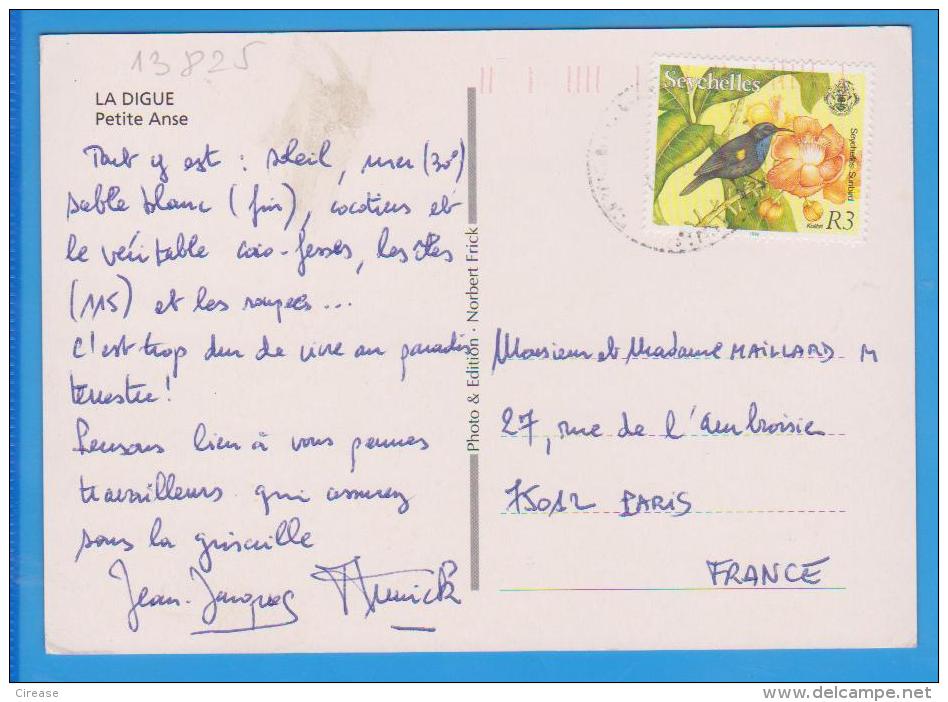 13825
LA DIGUE
Petite Anse
Tout y est : soleil, mer (30°)
sable blanc (fin), cocotiers et
le véritable coco-fesses, les îles
(115) et les rougets...
C'est trop dur de vivre au paradis
terrestre !
Pensons bien à vous pauvres
travailleurs qui assurez
sous la grisaille
Jean-Jacques
Photo & Edition · Norbert Frick
Seychelles
Seychelles Sunbird
Kolibri
R3
Monsieur et Madame MAILLARD M
27, rue de l'Ambroisie
75012 PARIS
FRANCE
Clrease
www.delcampe.net